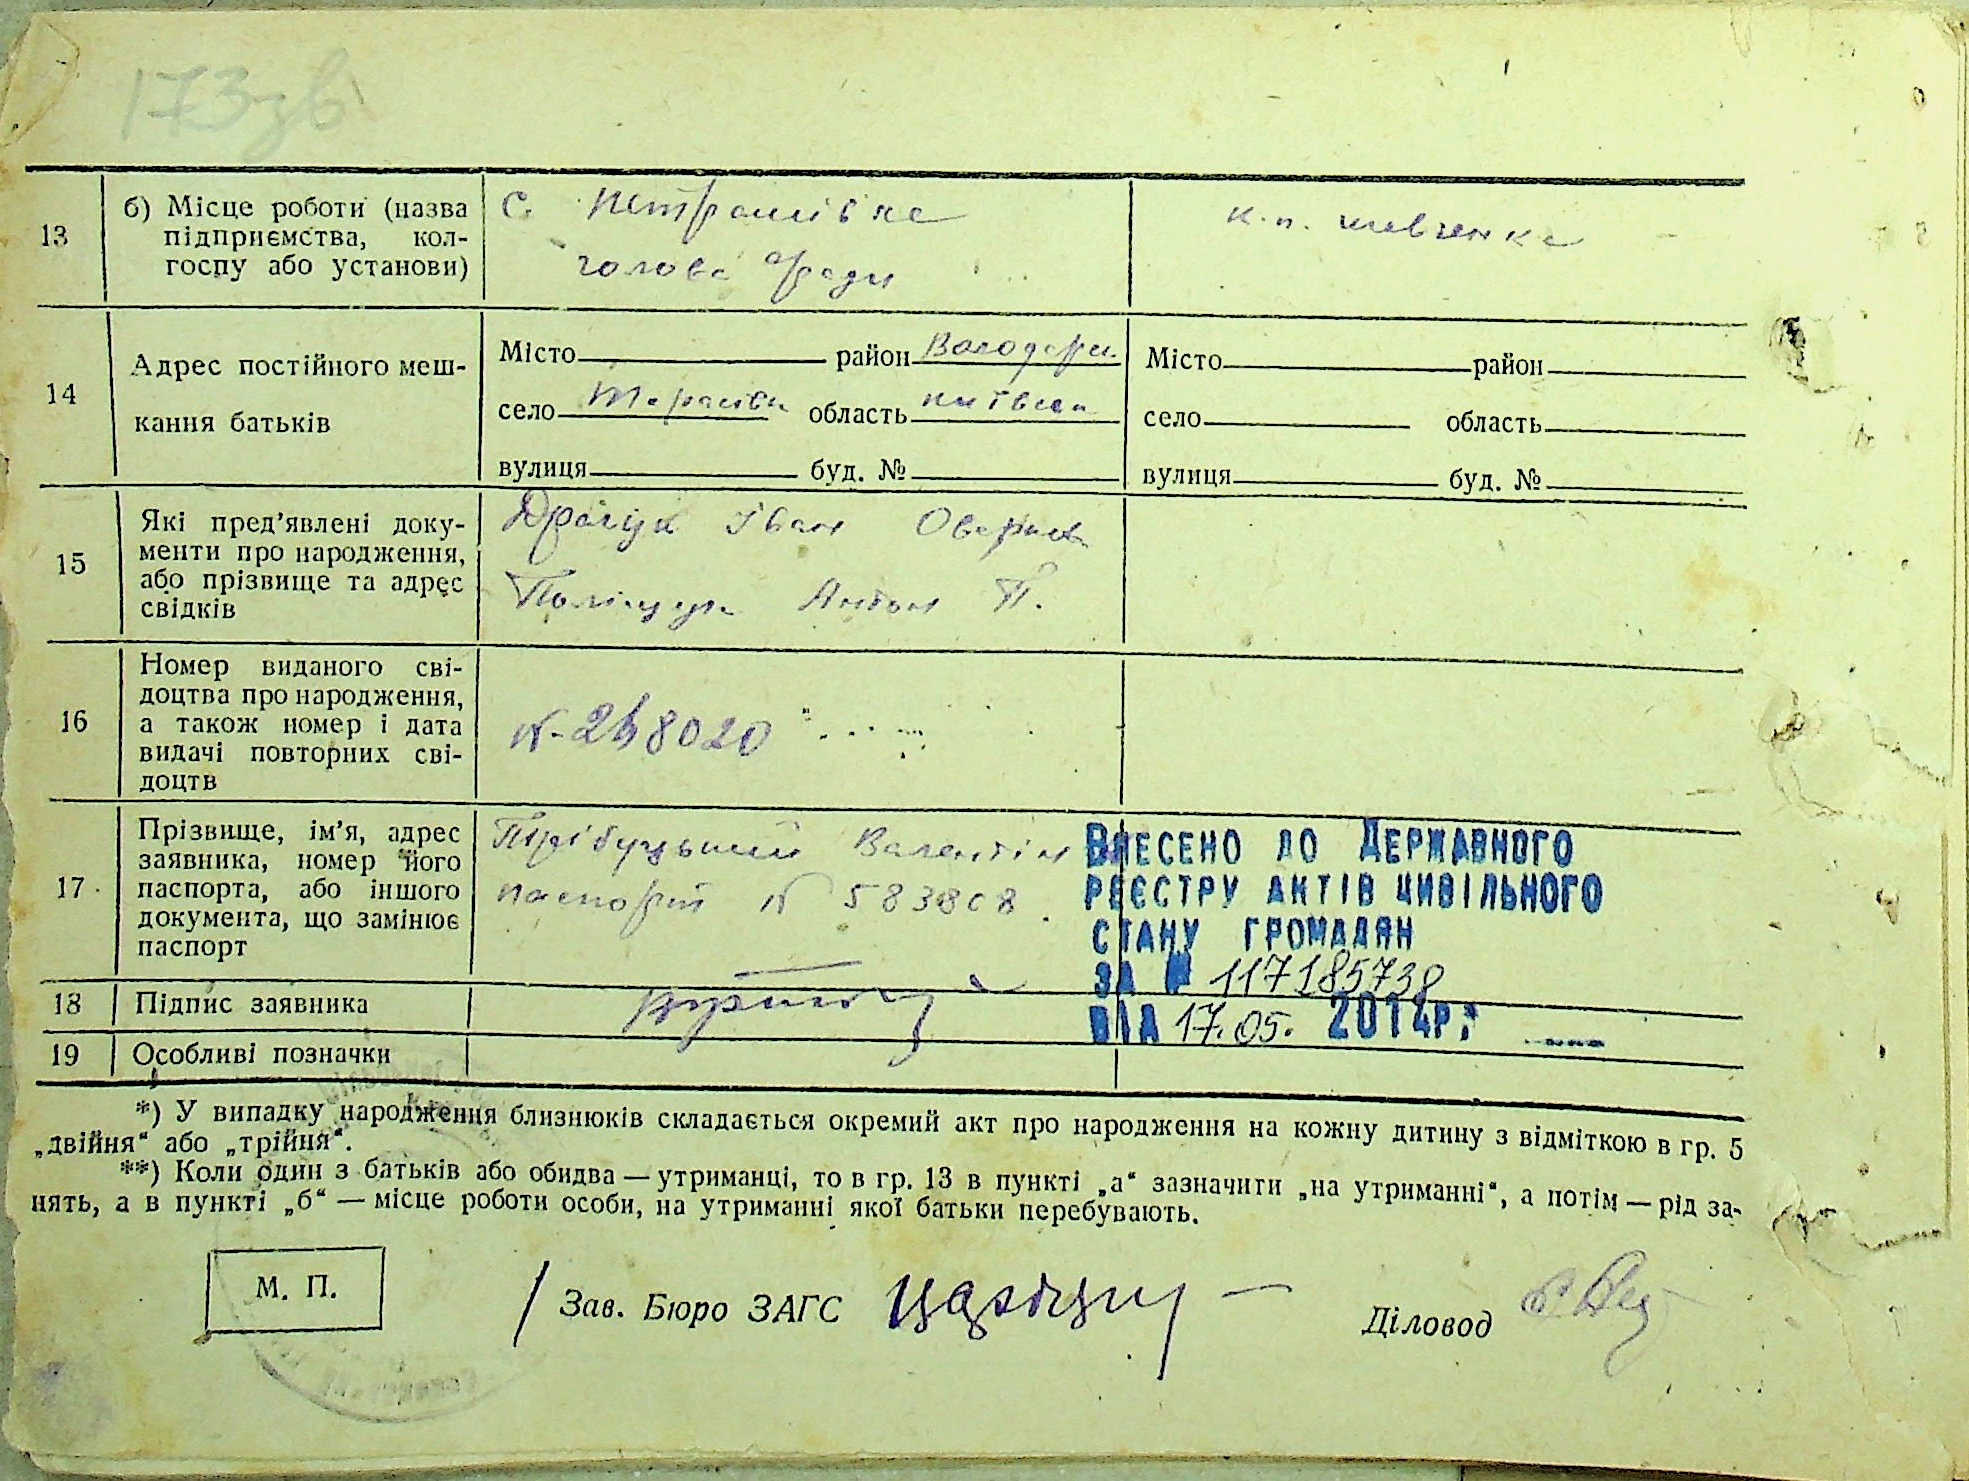 173зв
13
б) Місце роботи (назва
підприємства, кол-
госпу або установи)
С. Петрашівка
голова с/ради
к.п. шевченка
14
Адрес постійного меш-
кання батьків
Місто район Володарс.
село область київська
вулиця буд. №
Місто район
село область
вулиця буд. №
15
Які пред'явлені доку-
менти про народження,
або прізвище та адрес
свідків
Іван
Поліщук Антон П.
16
Номер виданого сві-
доцтва про народження,
а також номер і дата
видачі повторних сві-
доцтв
17
Прізвище, ім'я, адрес
заявника, номер його
паспорта, або іншого
документа, що замінює
паспорт
Валентін
паспорт № 583808.
Внесено до Державного
реєстру актів цивільного
стану громадян
за № 117185738
від 17.05. 2014р.
18 Підпис заявника
19 Особливі позначки
*) У випадку народження близнюків складається окремий акт про народження на кожну дитину з відміткою в гр. 5
„двійня“ або „трійня“.
**) Коли один з батьків або обидва — утриманці, то в гр. 13 в пункті „а“ зазначити „на утриманні“, а потім — рід за-
нять, а в пункті „б“ — місце роботи особи, на утриманні якої батьки перебувають.
М. П.
Зав. Бюро ЗАГС
Діловод